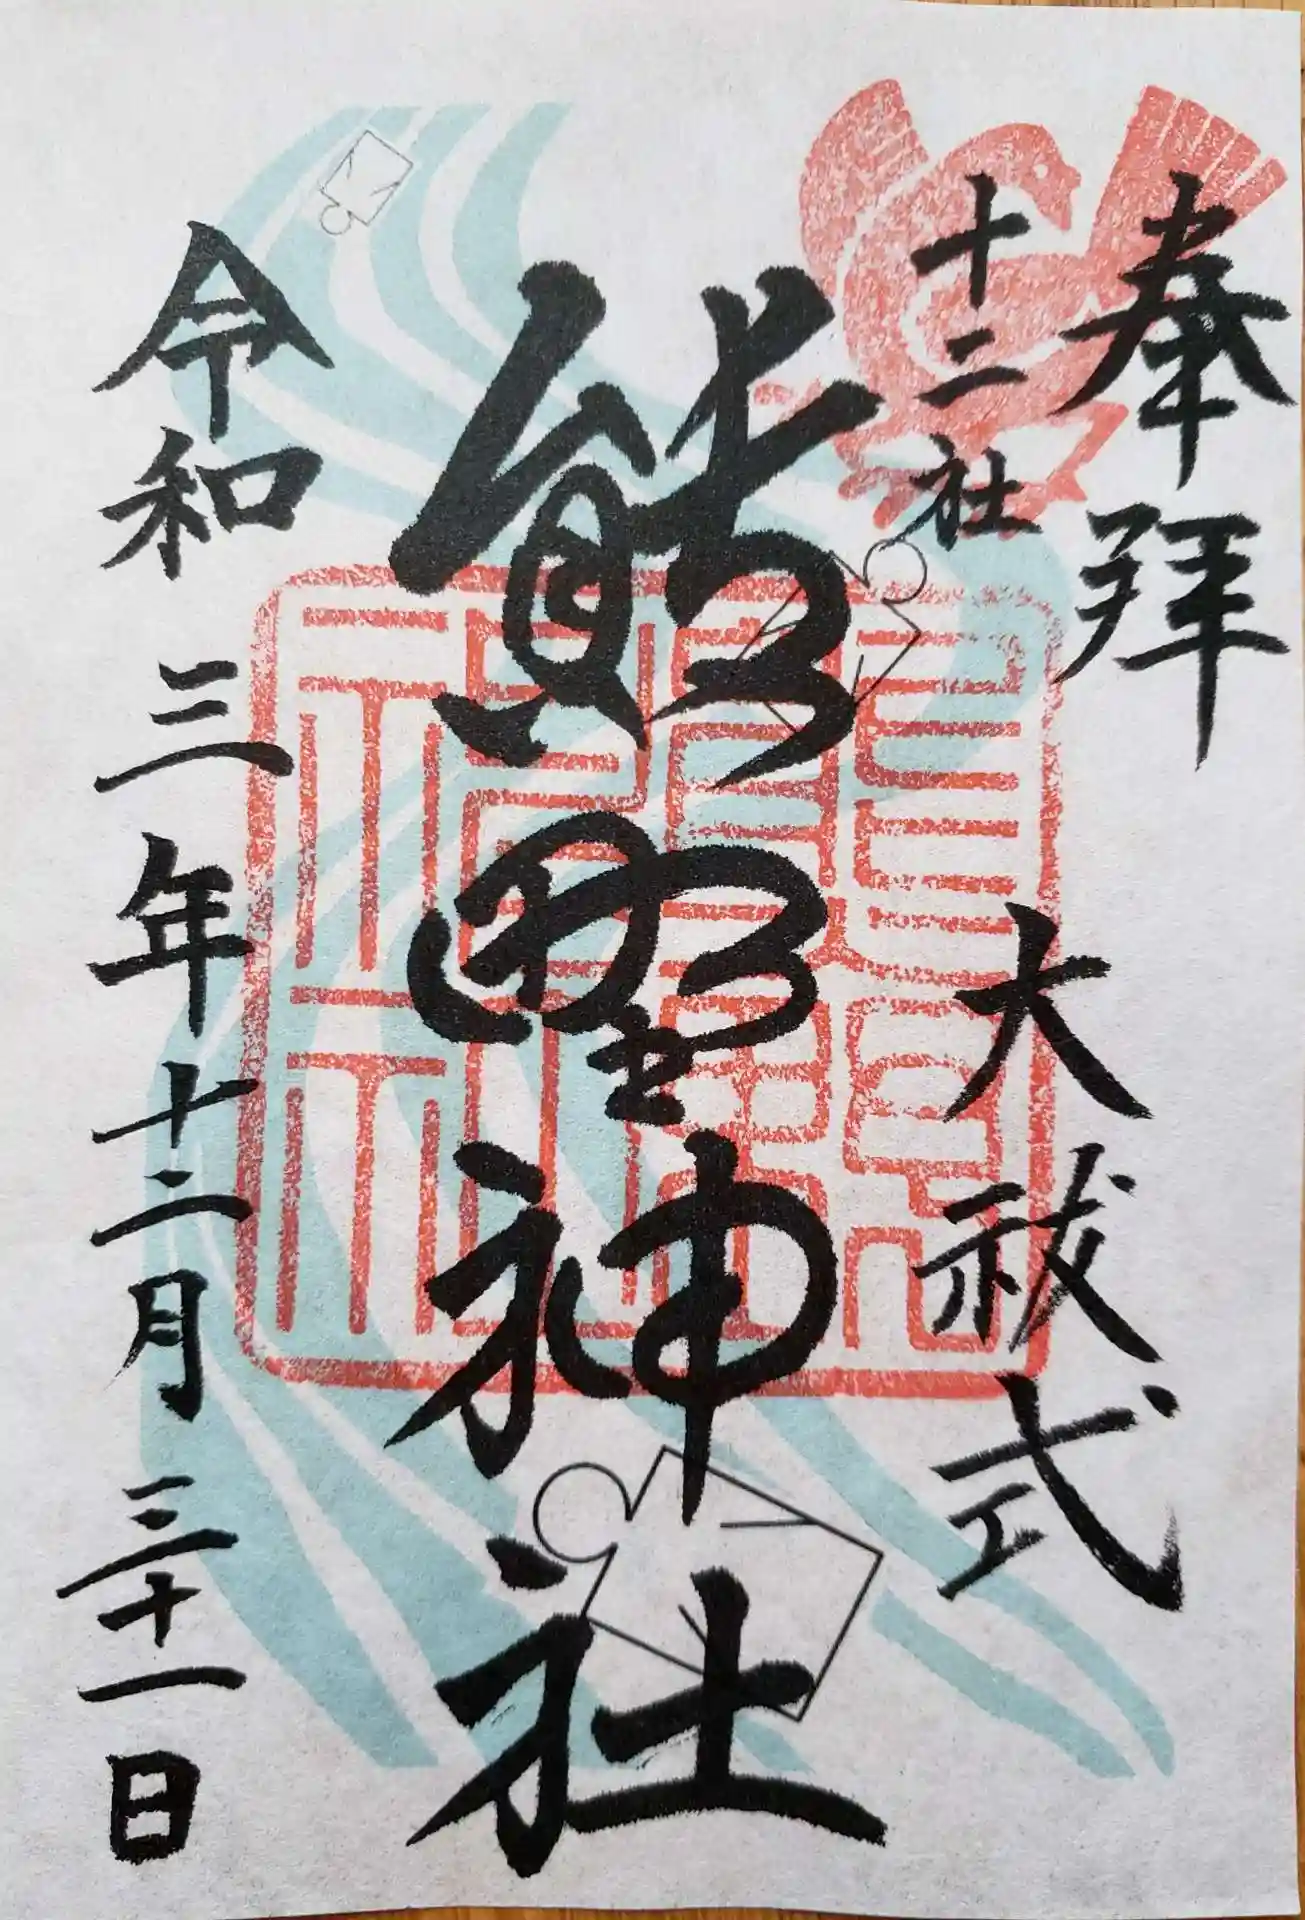 奉拝
十二社
大祓式
熊野神社
令和三年十二月三十一日